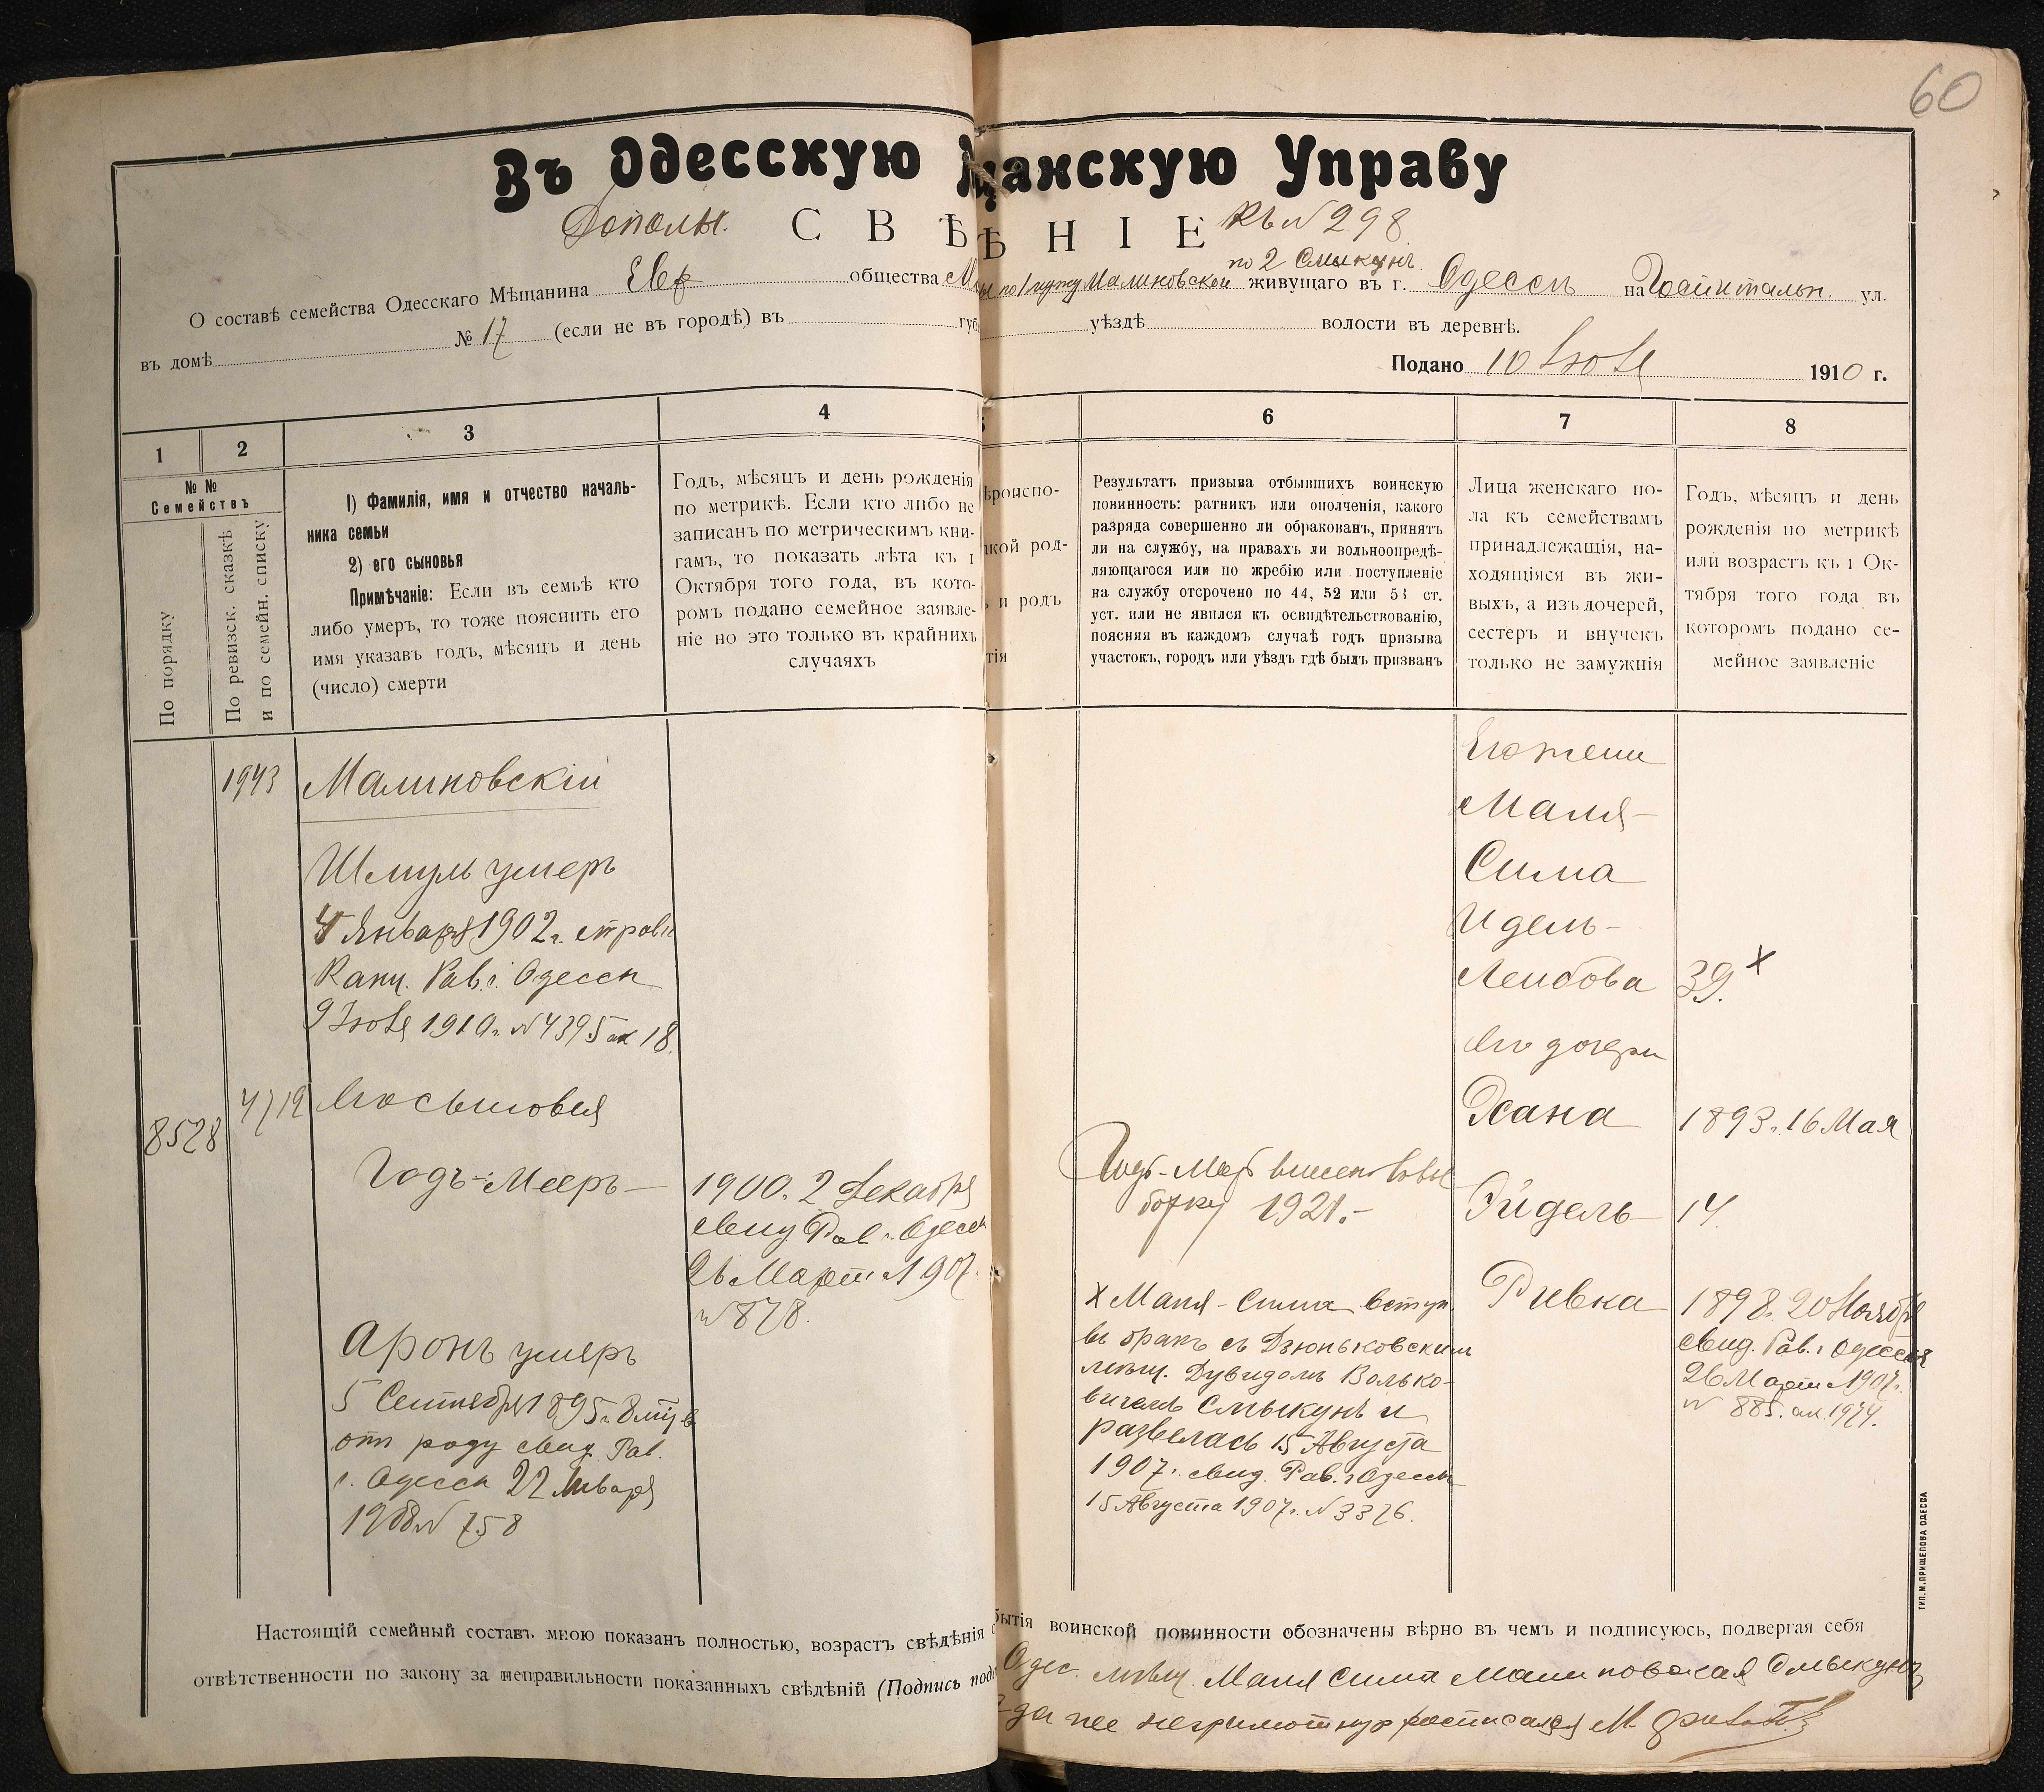 60
Въ Одесскую щанскую Управу
Дополн. СВѢ ѢНІЕ Къ № 298
по 2 Смыкунъ
О составѣ семейства Одесскаго Мѣщанина Евр общества по 1 мужу Малиновской живущаго въ г. Одессѣ на Госпитальн. ул.
въ домѣ № 17 (если не въ городѣ) въ губ уѣздѣ волости въ деревнѣ.
Подано 10 Іюля 1910 г.
1 2 3 4 6 7 8
№ №
Семействъ
По порядку
По ревизск. сказкѣ
и по семейн. списку
1) Фамилія, имя и отчество началь-
ника семьи
2) его сыновья
Примѣчаніе: Если въ семьѣ кто
либо умеръ, то тоже пояснить его
имя указавъ годъ, мѣсяцъ и день
(число) смерти
Годъ, мѣсяцъ и день рожденія
по метрикѣ. Если кто либо не
записанъ по метрическимъ кни-
гамъ, то показать лѣта къ 1
Октября того года, въ кото-
ромъ подано семейное заявле-
ніе но это только въ крайнихъ
случаяхъ
ѣроиспо-
акой род-
и родъ
тія
Результатъ призыва отбывшихъ воинскую
повинность: ратникъ или ополченія, какого
разряда совершенно ли обракованъ, принятъ
ли на службу, на правахъ ли вольноопредѣ-
ляющагося или по жребію или поступленіе
на службу отсрочено по 44, 52 или 53 ст.
уст. или не явился къ освидѣтельствованію,
поясняя въ каждомъ случаѣ годъ призыва
участокъ, городъ или уѣздъ гдѣ былъ призванъ
Лица женскаго по-
ла къ семействамъ
принадлежащія, на-
ходящіяся въ жи-
выхъ, а изъ дочерей,
сестеръ и внучекъ
только не замужнія
Годъ, мѣсяцъ и день
рожденія по метрикѣ
или возрастъ къ 1 Ок-
тября того года въ
которомъ подано се-
мейное заявленіе
1943 Малиновскій
Шмуль умеръ
4 Января 1902 г. справк
Канц. Рав. г. Одессы
9 Іюля 1910 г. № 4395 ак 18.
8528 4719 Его сыновья
Годъ-Мееръ
1900. 2 Декабря
свид. Рав. г. Одессы
26 Марта 1907
№ 878.
Аронъ умеръ
5 Сентября 1895 г.
отъ роду свид. Рав.
г. Одессы 22 Января
1908 № 758
Годъ-Меер внесенъ въ вы
борку 1921.-
х Маля-Сима вступ.
въ бракъ съ Дзюньковскимъ
мѣщ. Дувидомъ Волько-
вичемъ Смыкунъ и
развелась 15 Августа
1907 г. свид. Рав. г. Одессы
15 Августа 1907 г. № 3376.
Его жена
Маля-
Сима
Идель-
Лейбова 39. х
Его дочери
Хана 1893 г. 16 Мая
Эйдель 14.
Ривка 1898 г. 20 Ноября
свид. Рав. г. Одессы
26 Марта 1907 г.
№ 885. ак. 1974.
Настоящій семейный составъ мною показанъ полностью, возрастъ свѣдѣнія о бытія воинской повинности обозначены вѣрно въ чемъ и подписуюсь, подвергая себя
отвѣтственности по закону за неправильности показанныхъ свѣдѣній (Подпись пода Одес. мѣщ. Маля Сима Малиновская Смыкунъ
а за нее неграмотную росписался М.
ТИП. М. ПРИЩЕПОВА ОДЕССА